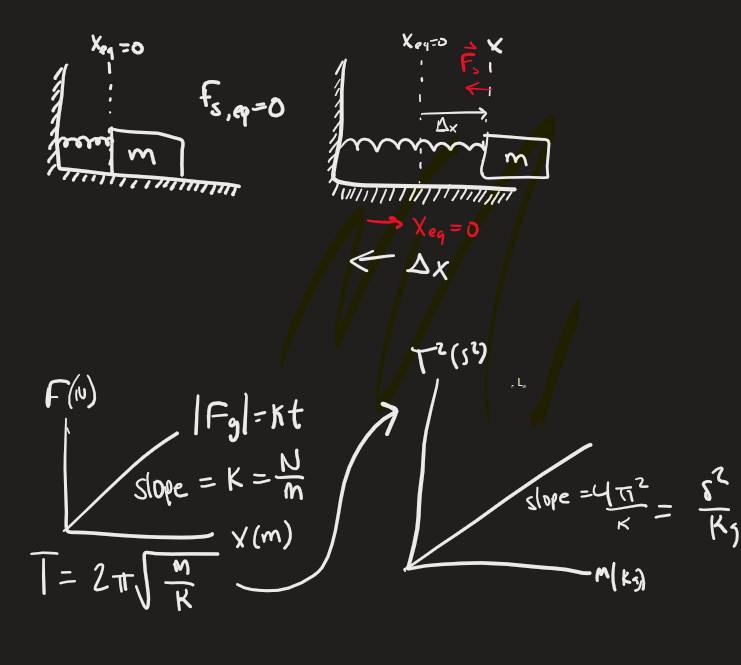 x_eq = 0
f_s,eq = 0
m
x_eq = 0
x
F_s
Δx
m
→ x_eq = 0
← Δx
F(N)
|F_g| = kt
slope = K = N/m
x(m)
T = 2π√(m/K)
T² (s²)
slope = 4π²/K = s²/Kg
m(kg)